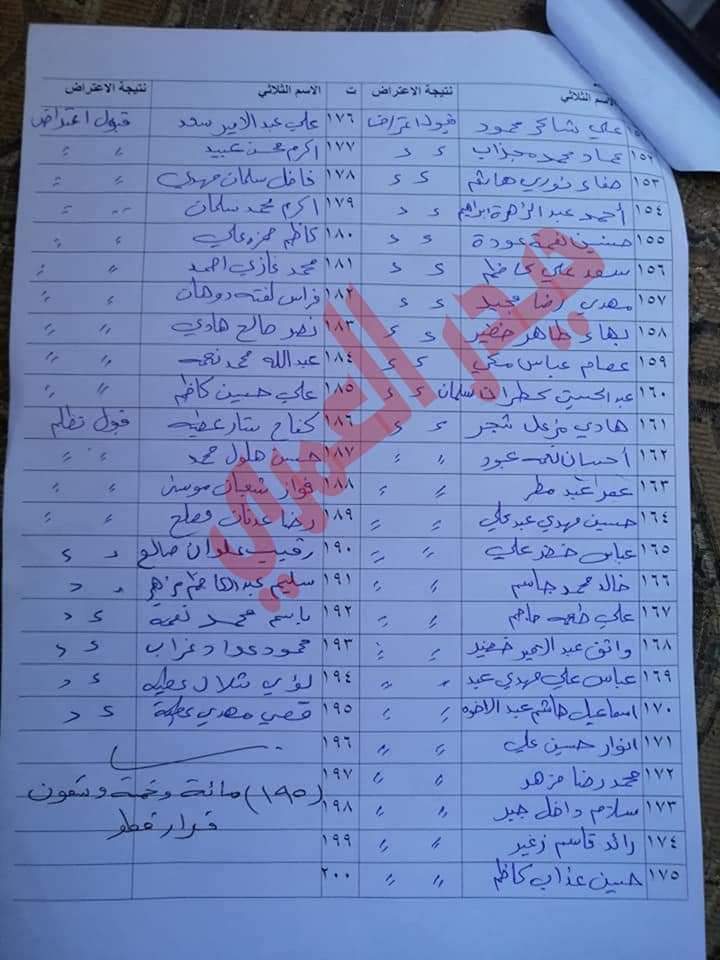 الاسم الثلاثي نتيجة الاعتراض ت الاسم الثلاثي نتيجة الاعتراض
علي شاكر محمود قبول اعتراض ١٧٦ علي عبد الامير سعد قبول اعتراض
١٥٢ عماد محمد جذاب ء ء ١٧٧ اكرم محسن عبيد " "
١٥٣ صفاء نوري هاشم ء ء ١٧٨ فاضل سلمان مهدي " "
١٥٤ أحمد عبد الزهرة ابراهيم ء ء ١٧٩ اكرم محمد سلمان " "
١٥٥ حسنين نعمة عودة ء ء ١٨٠ كاظم حمزه علي " "
١٥٦ سعد علي كاظم ء ء ١٨١ محمد غازي احمد " "
١٥٧ مهدي رضا مجيد ء ء ١٨٢ فراس لفته دوهان " "
١٥٨ بهاء طاهر خضير ء ء ١٨٣ نصر صالح هادي " "
١٥٩ عصام عباس مكي ء ء ١٨٤ عبدالله محمد نعمه " "
١٦٠ عبد الحسين سلمان ء ء ١٨٥ علي حسين كاظم " "
١٦١ هادي مزعل شجر ء ء ١٨٦ كفاح ستار عطيه قبول تظلم
١٦٢ أحسان نعمه عبود " " ١٨٧ حسن هلول محمد " "
١٦٣ عبد مطر " " ١٨٨ فواز شعبان موسى " "
١٦٤ حسين مهدي عبد علي " " ١٨٩ رضا عدنان مصلح " "
١٦٥ عباس خضر علي " " ١٩٠ رقيب علوان صالح ء ء
١٦٦ خالد محمد جاسم " " ١٩١ سليم عبد الكاظم مزهر ء ء
١٦٧ علي طعمه جاسم " " ١٩٢ باسم محمد نعمه ء ء
١٦٨ واثق عبد الامير خضير " " ١٩٣ محمود عواد غراب ء ء
١٦٩ عباس علي مهدي عبد " " ١٩٤ لؤي شلال عطيه ء ء
١٧٠ اسماعيل هاشم " " ١٩٥ قصي مهدي عطية ء ء
١٧١ انوار حسين علي " " ١٩٦
١٧٢ محمد رضا مزهر " " ١٩٧ (١٩٥) مائة وخمسة وتسعون
١٧٣ سلام داخل جبر " " ١٩٨ قرار فقط
١٧٤ رائد قاسم زغير " " ١٩٩
١٧٥ حسين عذاب كاظم " " ٢٠٠
حيدر العمري